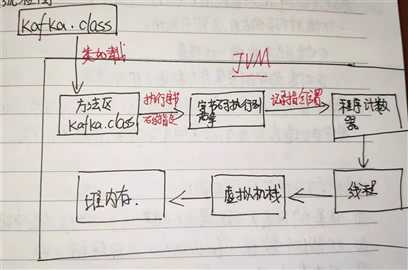 流程图
kafka.class
类加载
JVM
方法区
kafka.class
执行字节
码指令
字节码执行引
擎
记录指令位置
程序计数
器
线程
虚拟机栈
堆内存.